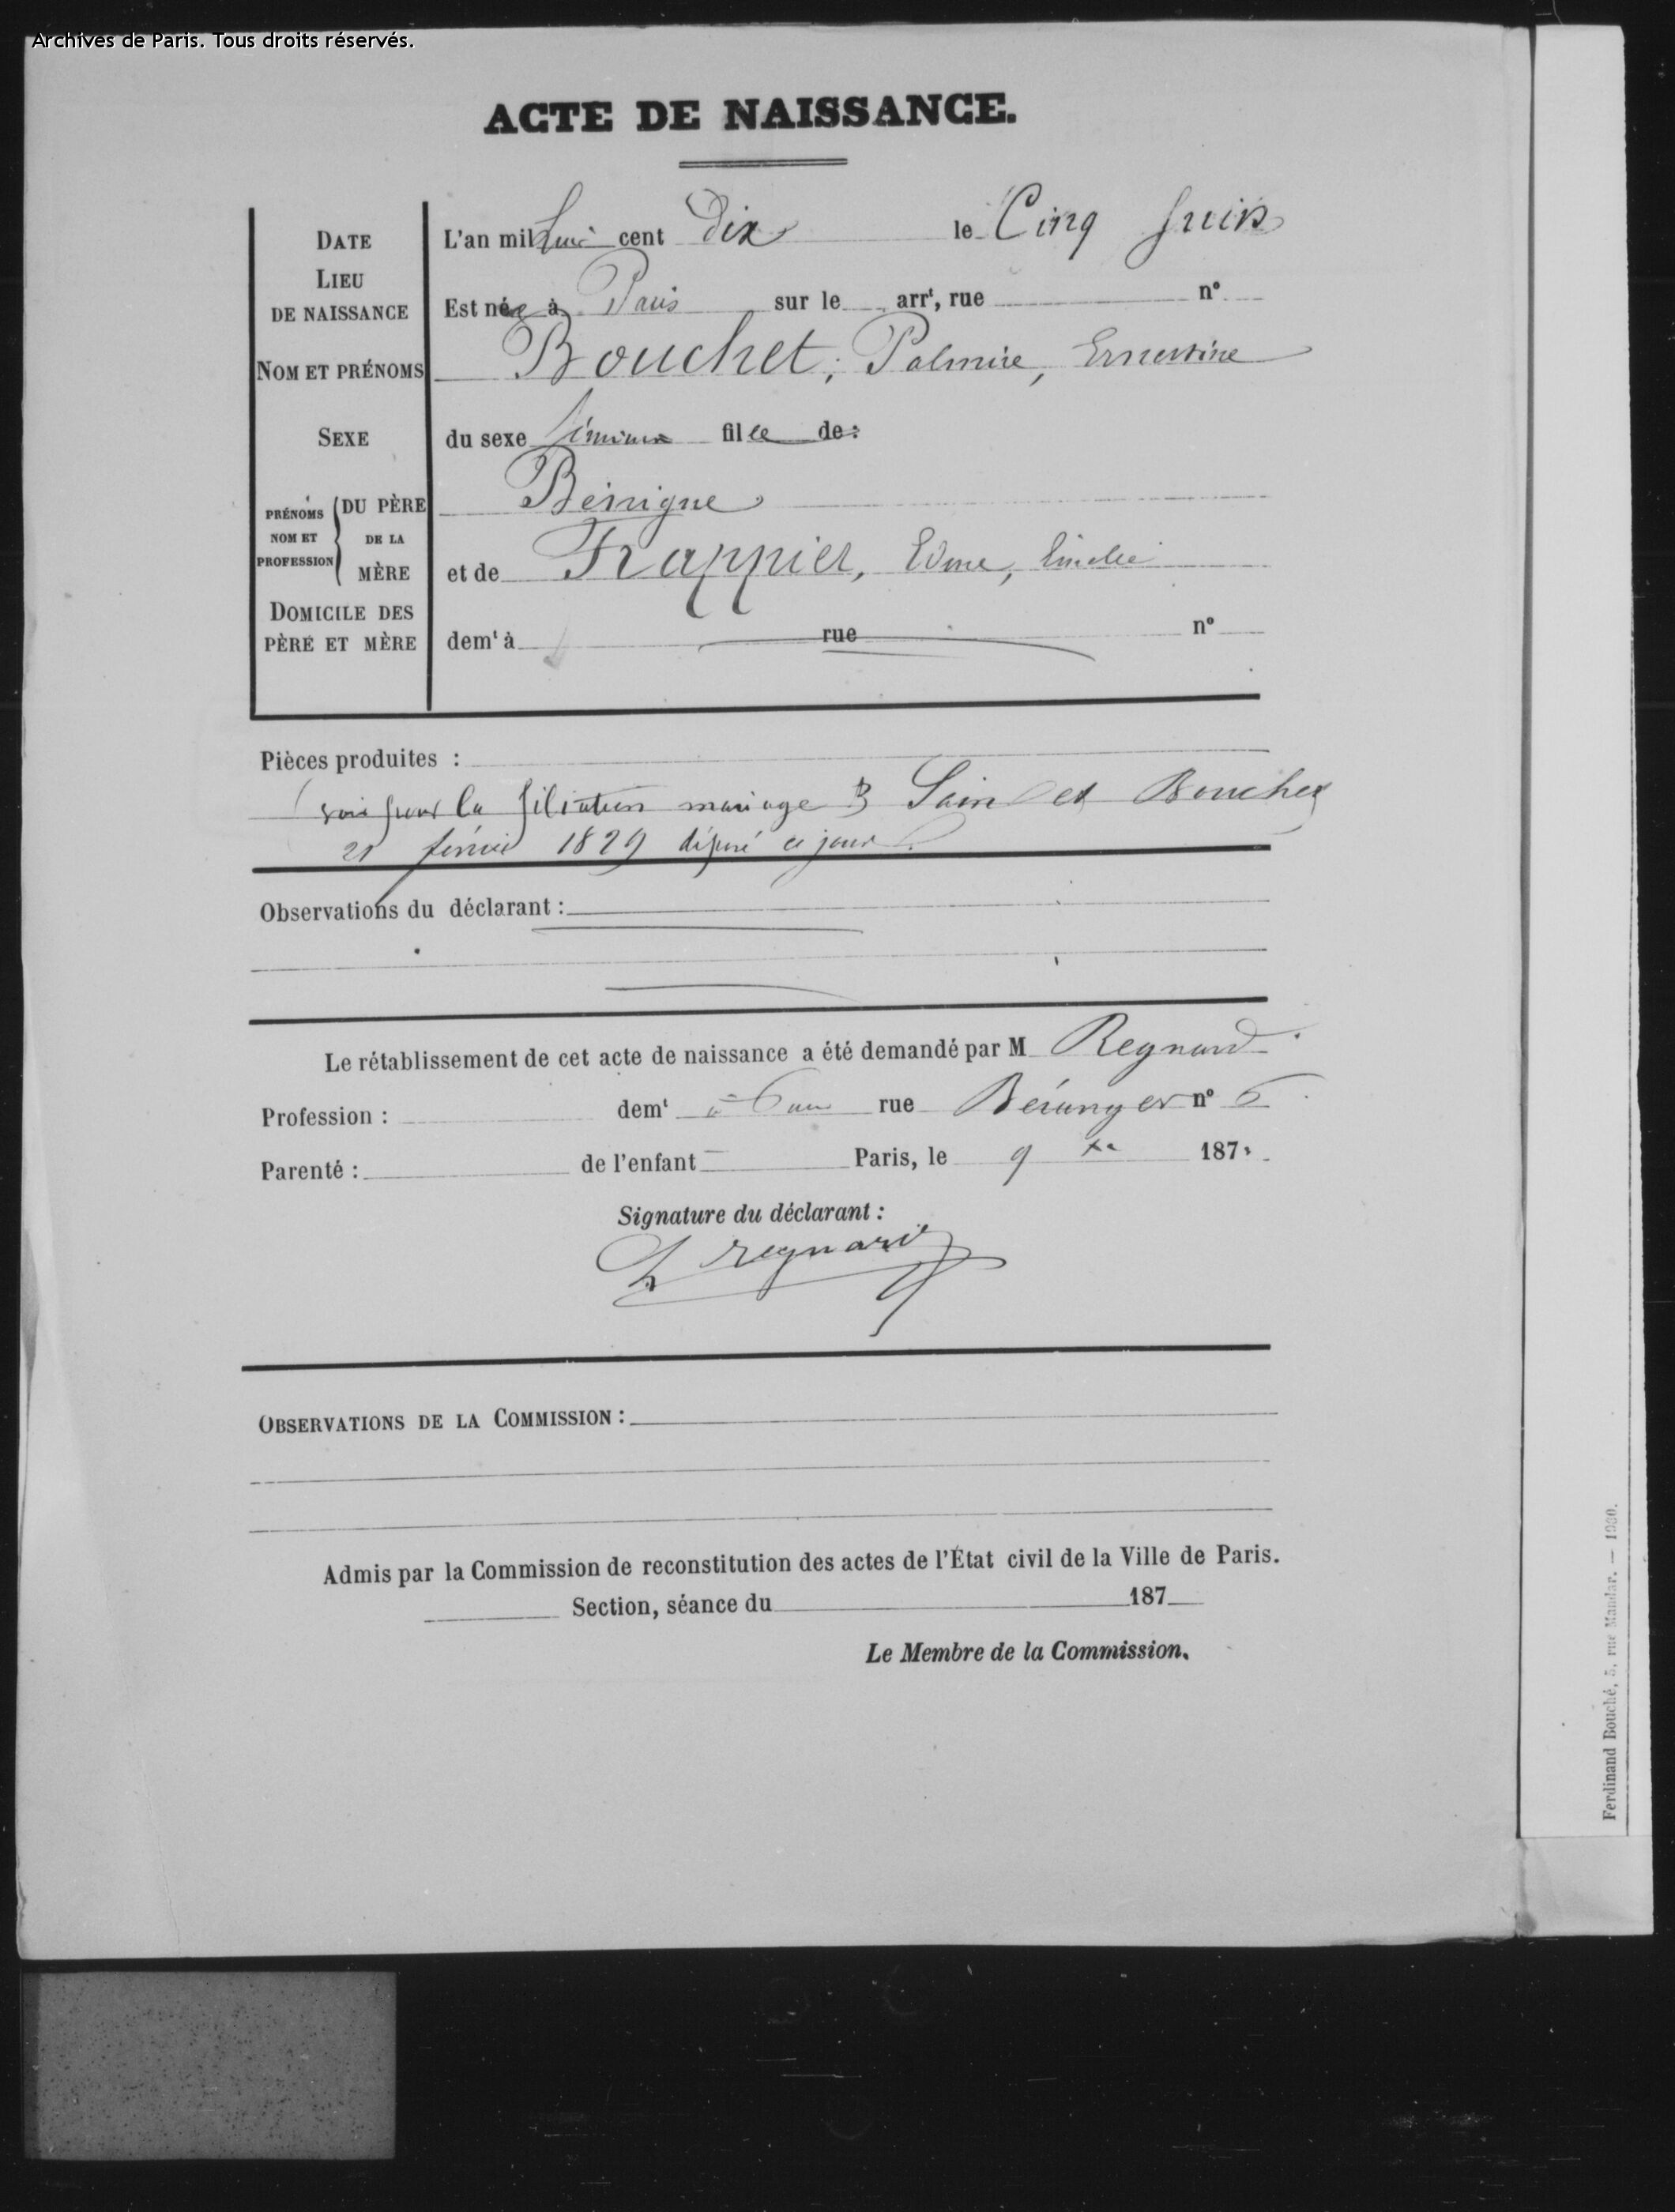 Archives de Paris. Tous droits réservés.
ACTE DE NAISSANCE.
DATE
L'an mil huit cent Dix le Cinq Juin
LIEU
DE NAISSANCE
Est née à Paris sur le arrt, rue n°
NOM ET PRÉNOMS
Bouchet, Palmire, Ernestine
SEXE
du sexe féminin fille de:
PRÉNOMS NOM ET PROFESSION
DU PÈRE
Bénigne
DE LA MÈRE
et de Frappier, Edme, Emélie
DOMICILE DES
PÈRE ET MÈRE
demt à rue n°
Pièces produites :
voir pour la filiation mariage et Bouchet
21 février 1829 déposé ce jour
Observations du déclarant :
Le rétablissement de cet acte de naissance a été demandé par M Regnard
Profession : demt à Paris rue Béranger n° 6
Parenté : de l'enfant Paris, le 9 187
Signature du déclarant :
regnard
OBSERVATIONS DE LA COMMISSION :
Admis par la Commission de reconstitution des actes de l'État civil de la Ville de Paris.
Section, séance du 187
Le Membre de la Commission.
Ferdinand Bouché, 5, rue Mandar. — 1000.